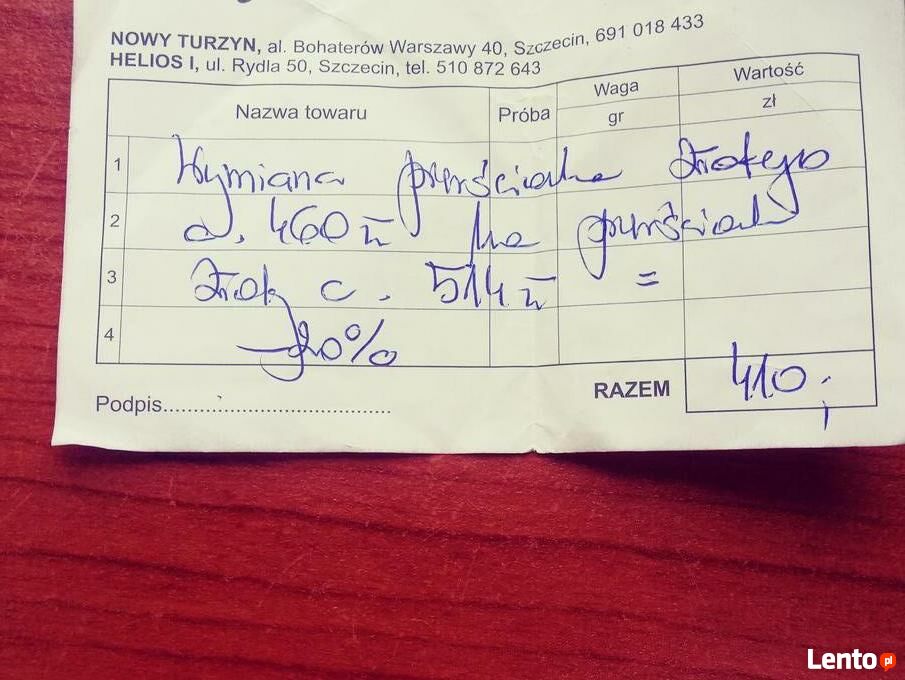 NOWY TURZYN, al. Bohaterów Warszawy 40, Szczecin, 691 018 433
HELIOS I, ul. Rydla 50, Szczecin, tel. 510 872 643
Nazwa towaru Próba Waga gr Wartość zł
1 Wymiana pierścionka złotego
2 c. 460 zł na pierścionek
3 złoty c. 514 zł =
4 -20%
RAZEM 410,-
Podpis
Lento pl